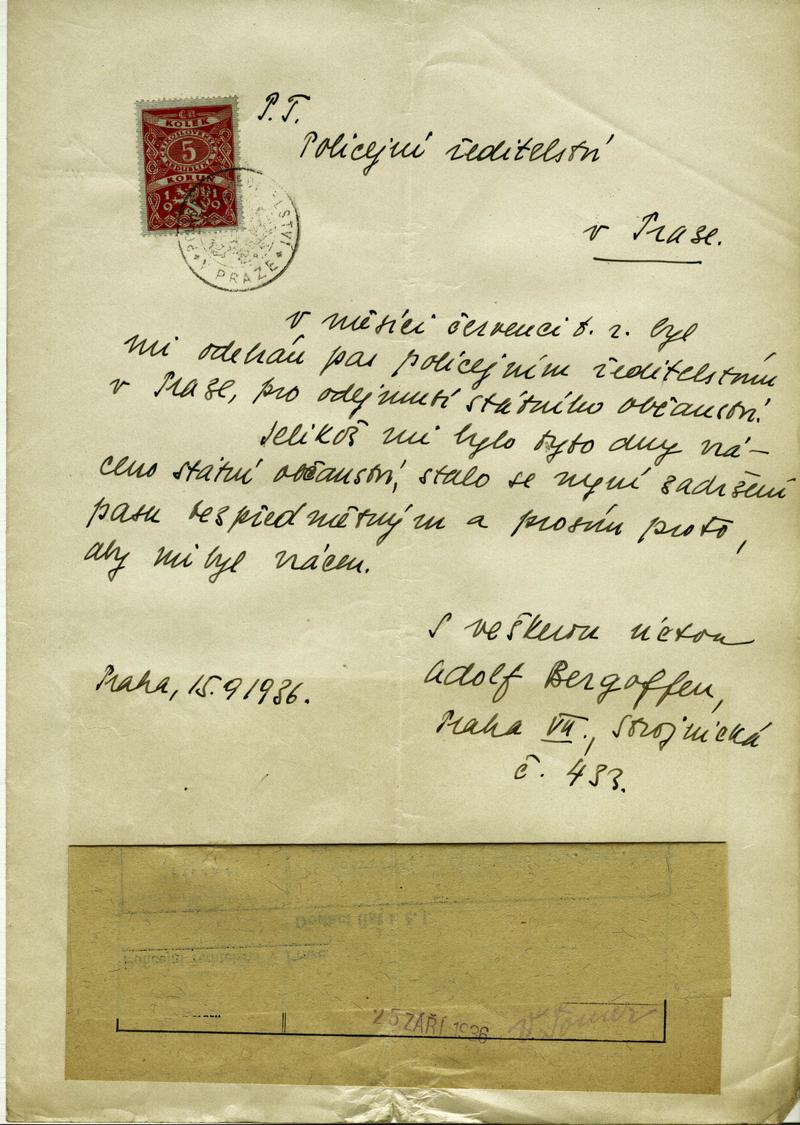 ČS.
KOLEK
ČESKOSLOVENSKÁ
5
REPUBLIKA
KORUN
1919
POLICEJNÍ ŘEDITELSTVÍ
V PRAZE
P. T.
Policejní ředitelství
v Praze.
v měsíci červenci t. r. byl
mi odebrán pas policejním ředitelstvím
v Praze, pro odejmutí státního občanství.
Jelikož mi bylo tyto dny vrá-
ceno státní občanství, stalo se nyní zadržení
pasu bezpředmětným a prosím proto,
aby mi byl vrácen.
S veškerou úctou
Adolf Bergoffen,
Praha, 15.9 1936.
Praha VII., Strojnická
č. 433.
Dodací list k č. j.
Policejní ředitelství v Praze
25 ZÁŘÍ 1936